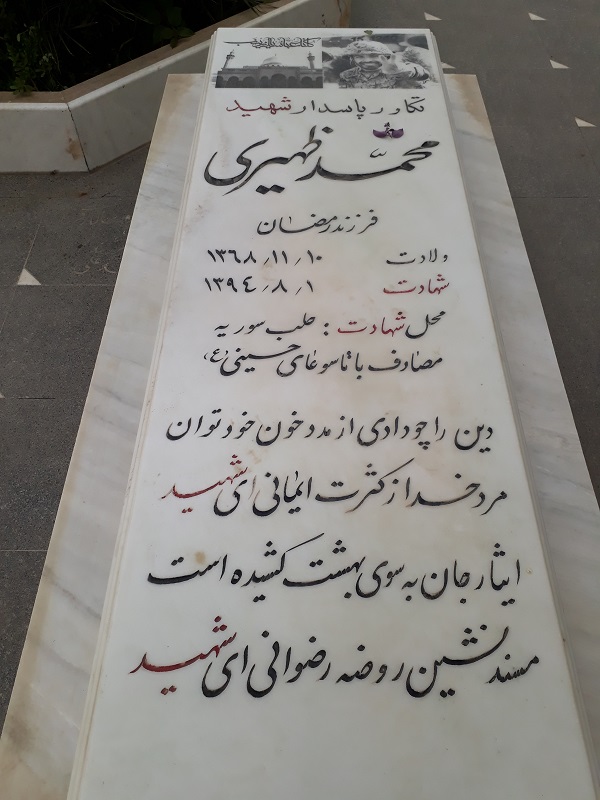 تکاور پاسدار شهید
محمد ظهیری
فرزند رمضان
ولادت ۱۳۶۸/۱۱/۱۰
شهادت ۱۳۹٤/۸/۱
محل شهادت : حلب سوریه
مصادف با تاسوعای حسینی (ع)
دین را چو دادی از مدد خون خود توان
مرد خدا ز کثرت ایمانی ای شهید
ایثار جان به سوی بهشت کشیده است
مسند نشین روضه رضوانی ای شهید